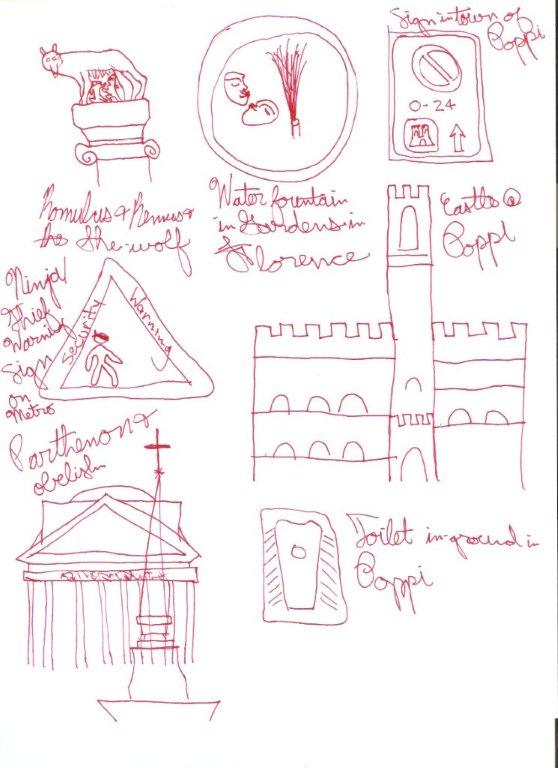 Sign in town of
Poppi
0-24
Romulus & Remus &
the She-wolf
Water fountain
in Gardens in
Florence
Castle @
Poppi
Ninja/
Thief
Warning
Sign
on
Metro
Security Warning
Parthenon &
obelisk
Toilet in-ground in
Poppi